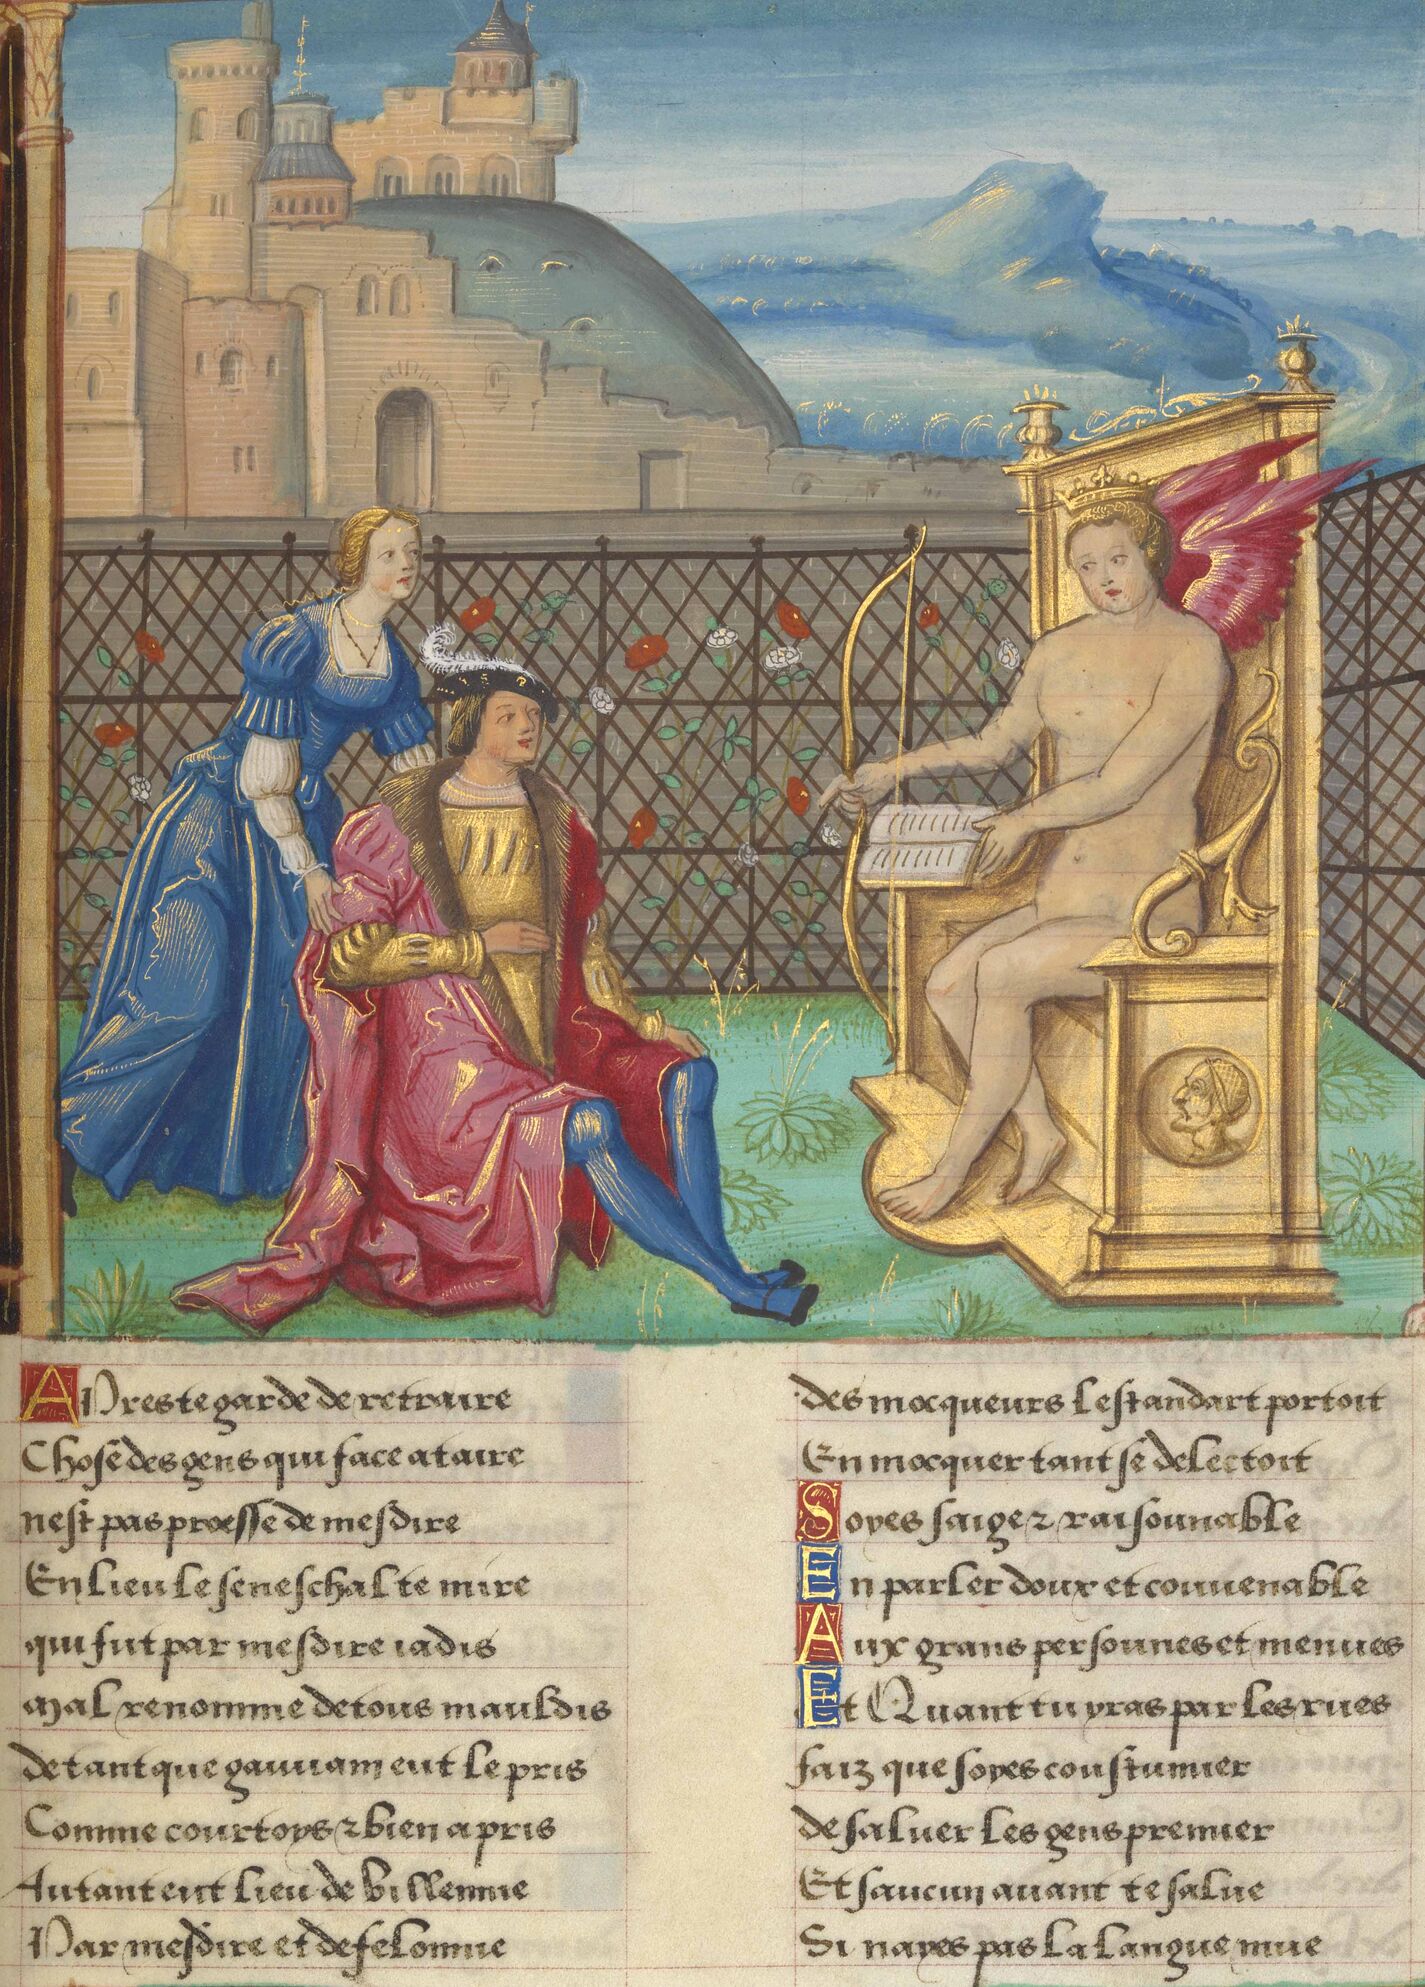 APres te garde de retraire
Chose des gens qui face a taire
nest pas proesse de mesdire
En lieu le seneschal te mire
qui fut par mesdire iadis
Mal renomme de tous mauldis
de tant que gauuam eut le pris
Comme courtoys & bien apris
Autant eut lieu de villennie
Par mesdire et de felonnie
des mocqueurs lestandart portoit
En mocquer tant se delectoit
Soyes saige & raisonnable
En parler doux et conuenable
Aux grans personnes et menues
Et Quant tu yras par les rues
faiz que soyes coustumier
de saluer les gens premier
Et saucun auant te salue
Si nayes pas la langue mue